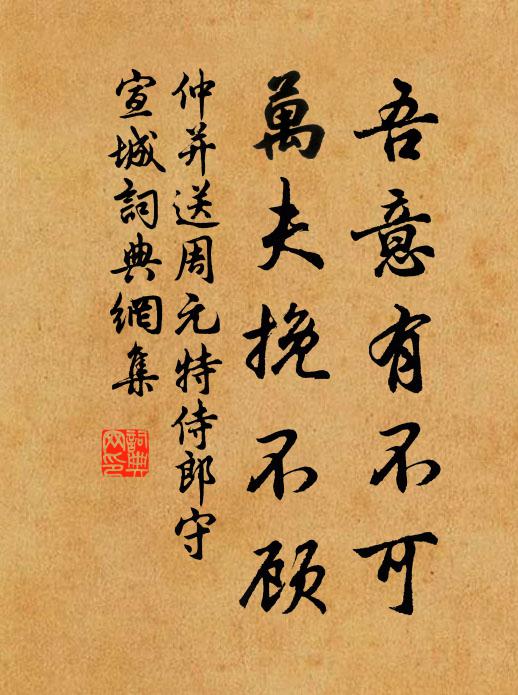 吾意有不可
萬夫挽不顾
仲并送周元特侍郎守
宣城詞典網集
詞典
网印